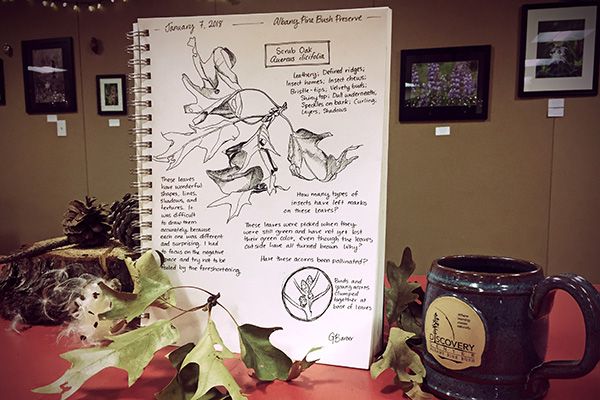 January 7, 2018
Albany Pine Bush Preserve
Scrub Oak
Quercus ilicifolia
Leathery; Defined ridges;
Insect homes; Insect chews;
Bristle-tips; Velvety buds;
Shiny top; Dull underneath;
Speckles on bark; Curling;
Layers; Shadows
These leaves
have wonderful
shapes, lines,
shadows, and
textures. It
was difficult
to draw them
accurately, because
each one was different
and surprising. I had
to focus on the negative
space and try not to be
fooled by the foreshortening.
How many types of
insects have left marks
on these leaves?
These leaves were picked when they
were still green and have not yet lost
their green color, even though the leaves
outside have all turned brown. Why?
Have these acorns been pollinated?
Buds and
young acorns
clumped
together at
base of leaves
GBarver
DISCOVERY